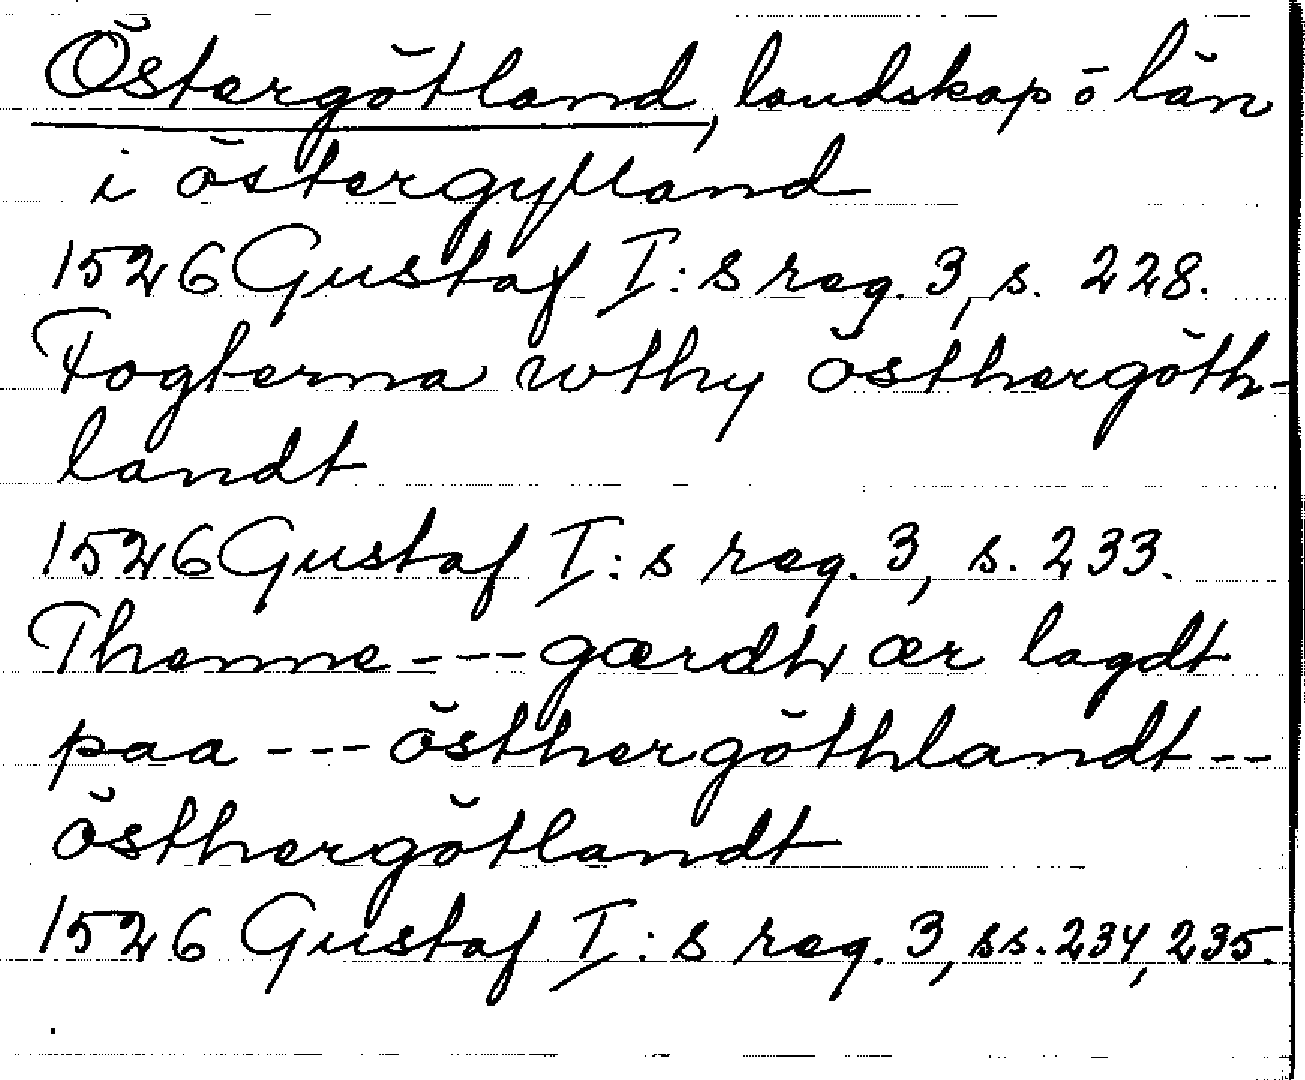 Östergötland, landskap o län
i östergylland
1526 Gustaf I:s reg. 3, s. 228.
Fogterna wthy östhergöth-
landt
1526 Gustaf I:s reg. 3, s. 233.
Thenne --- gærdh ær lagdt
paa --- östhergöthlandt --
östhergötlandt
1526 Gustaf I:s reg. 3, ss. 234, 235.